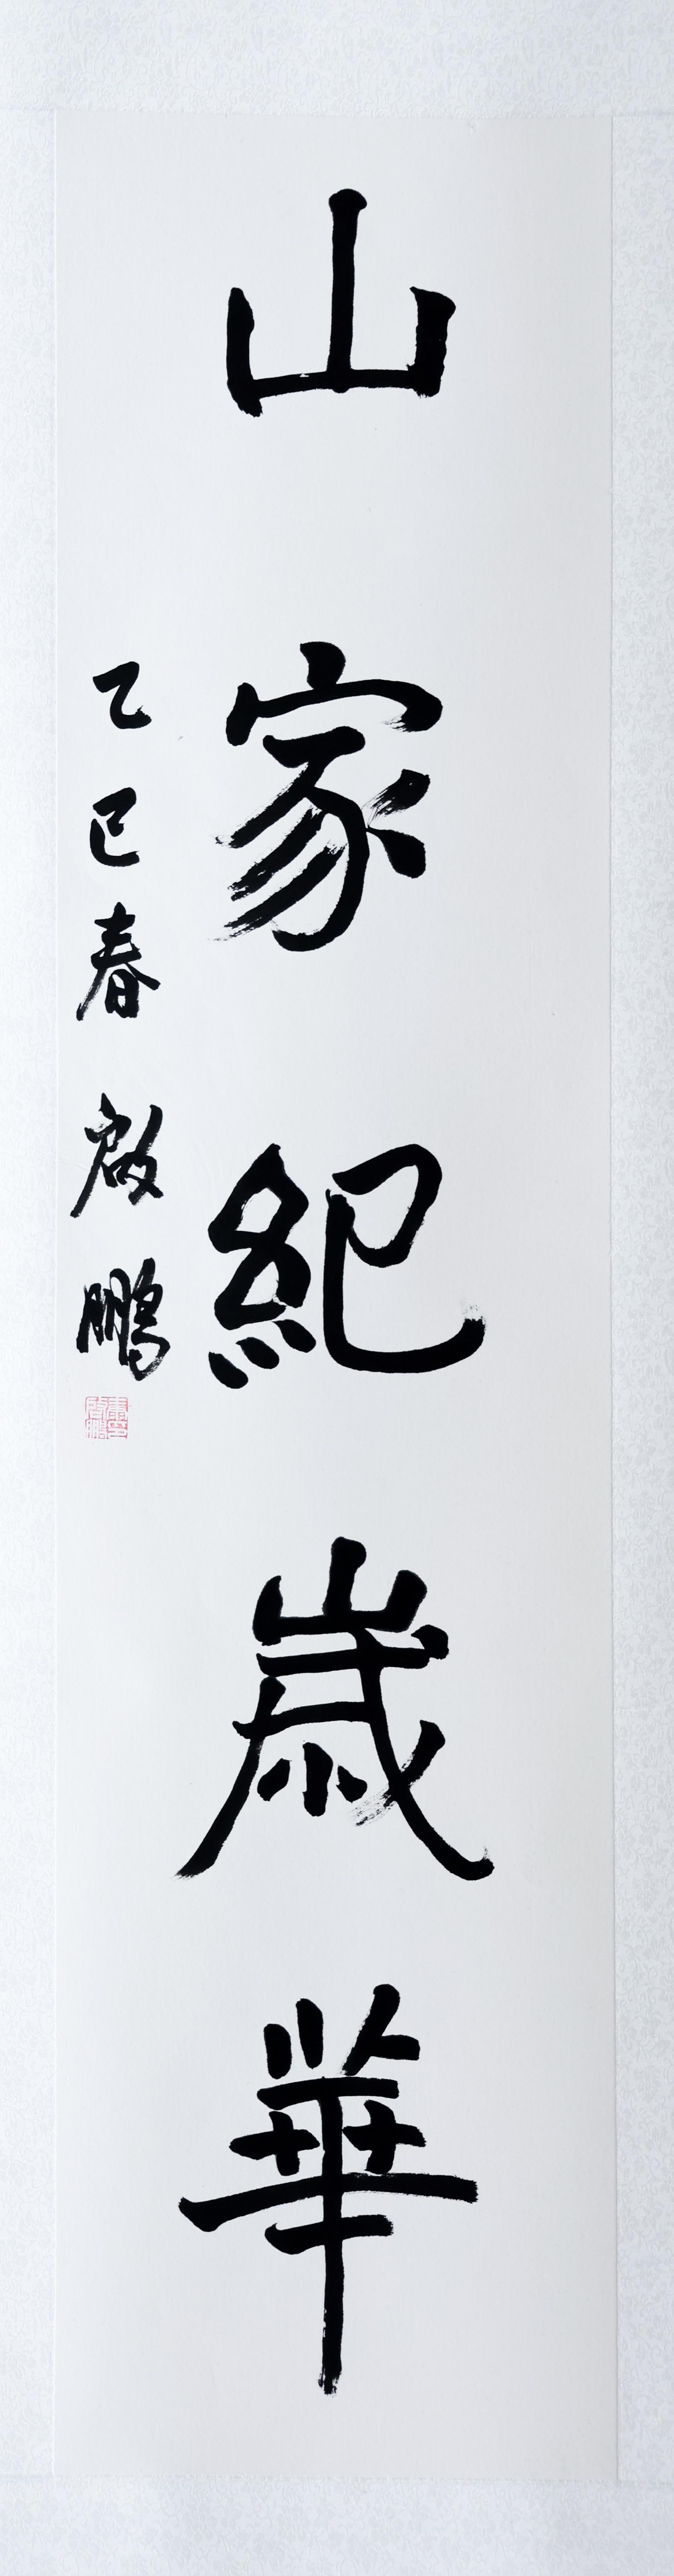 山家紀歲華
乙巳春 啟鵬